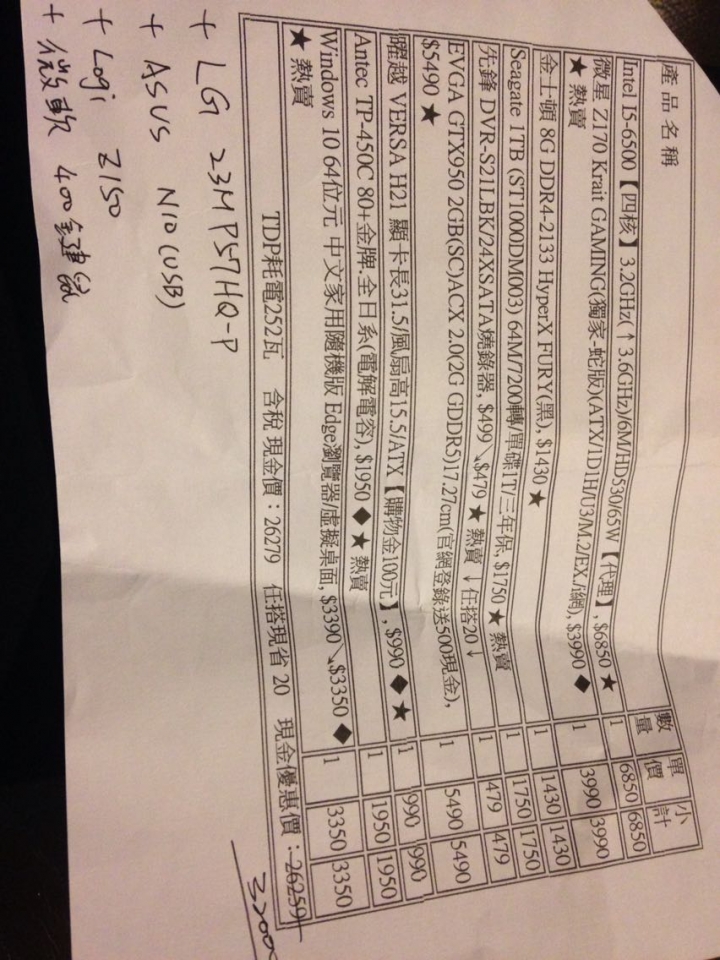 產品名稱 數量 單價 小計
Intel I5-6500【四核】3.2GHz(↑3.6GHz)/6M/HD530/65W【代理】, $6850 ★ 1 6850 6850
微星 Z170 Krait GAMING(獨家-蛇版)(ATX/1D1H/U3/M.2/EX./i網), $3990 ◆ 1 3990 3990
★ 熱賣
金士頓 8G DDR4-2133 HyperX FURY(黑), $1430 ★ 1 1430 1430
Seagate 1TB (ST1000DM003) 64M/7200轉/單碟1T/三年保, $1750 ★ 熱賣 1 1750 1750
先鋒 DVR-S21LBK/24XSATA燒錄器, $499↘$479 ★ 熱賣 ↓任搭20↓ 1 479 479
EVGA GTX950 2GB(SC)ACX 2.0(2G GDDR5)17.27cm(官網登錄送500現金), 1 5490 5490
$5490 ★
曜越 VERSA H21 顯卡長31.5/風扇高15.5/ATX【購物金100元】, $990 ◆ ★ 1 990 990
Antec TP-450C 80+金牌.全日系(電解電容), $1950 ◆ ★ 熱賣 1 1950 1950
Windows 10 64位元 中文家用隨機版 Edge瀏覽器/虛擬桌面, $3390↘$3350 ◆ 1 3350 3350
★ 熱賣
TDP耗電252瓦 含稅 現金價：26279 任搭現省 20 現金優惠價：26259
+ LG 23MP57HQ-P
+ ASUS N10 (USB)
+ Logi Z150
+ 微軟 400鍵鼠